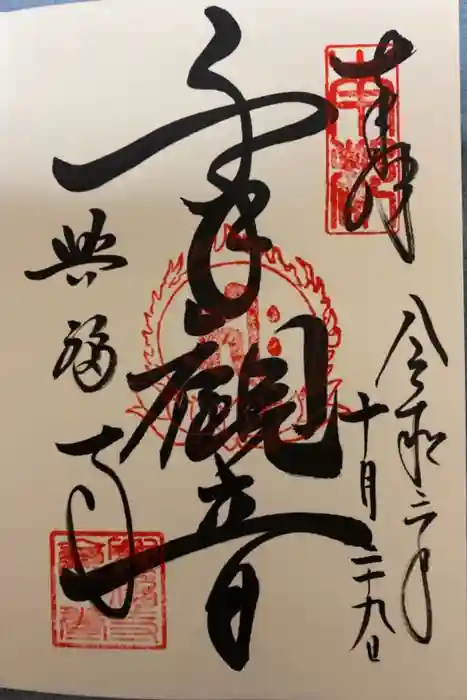 奉拝
令和二年
十月二十九日
千手観音
興福寺